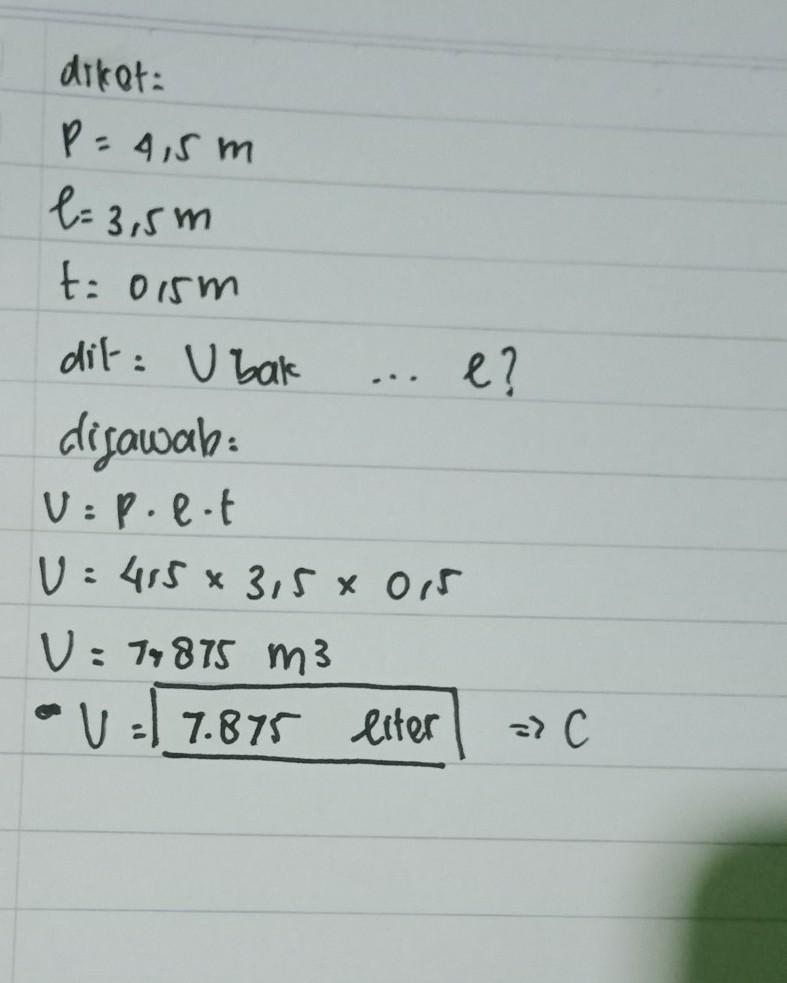 diket:
P = 4,5 m
l = 3,5 m
t = 0,5 m
dit : V bak ... l?
dijawab:
V = p . l . t
V = 4,5 x 3,5 x 0,5
V = 7,875 m3
- V = 7.875 liter => C